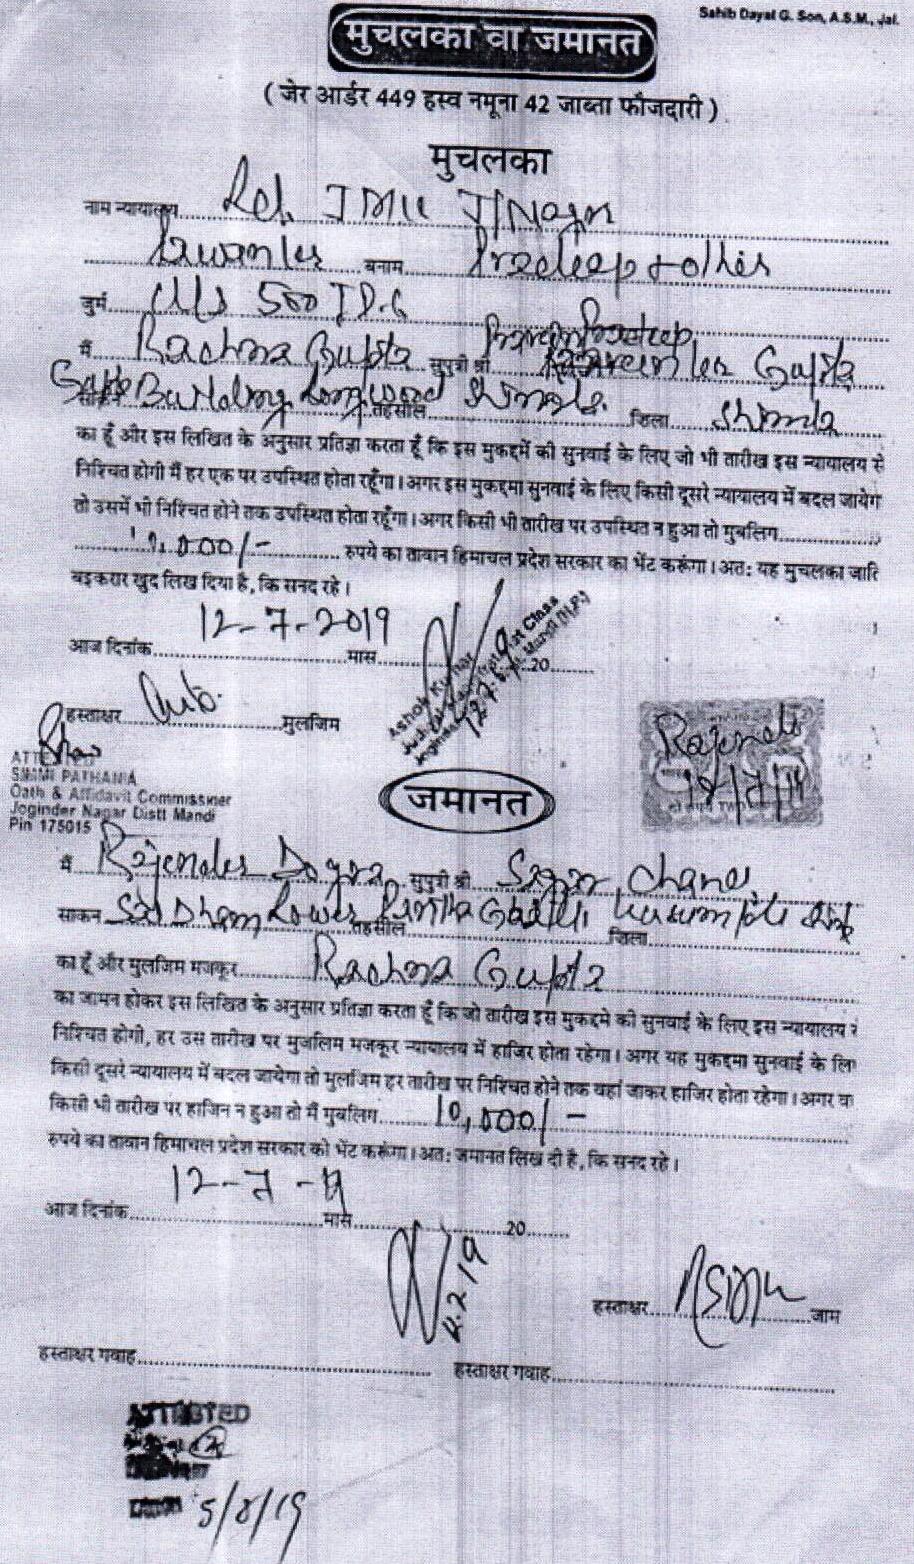 Sahib Dayal G. Son, A.S.M., Jal.
मुचलका वा जमानत
( जेर आर्डर 449 हस्व नमूना 42 जाब्ता फौजदारी )
मुचलका
नाम न्यायालय Ld. JMIC J/Nagar
बनाम Pradeep & others
जुर्म U/s 500 IPC
मैं Rachna Gupta सुपुत्री श्री Gupta
Building Longwood तहसील Shimla जिला Shimla
का हूँ और इस लिखित के अनुसार प्रतिज्ञा करता हूँ कि इस मुकद्दमें की सुनवाई के लिए जो भी तारीख इस न्यायालय से
निश्चित होगी मैं हर एक पर उपस्थित होता रहूँगा। अगर इस मुकद्दमा सुनवाई के लिए किसी दूसरे न्यायालय में बदल जायेगा
तो उसमें भी निश्चित होने तक उपस्थित होता रहूँगा। अगर किसी भी तारीख पर उपस्थित न हुआ तो मुबलिग
10,000/- रुपये का तावान हिमाचल प्रदेश सरकार का भेंट करूंगा। अत: यह मुचलका जाति
बइकरार खुद लिख दिया है, कि सनद रहे।
आज दिनांक 12-7-2019 मास 20
Ashok Kumar
Ist Class
Mandi (H.P.)
हस्ताक्षर मुलजिम
ATTESTED
SIMMI PATHANIA
Oath & Affidavit Commissiner
Joginder Nagar Distt Mandi
Pin 175015
Rajender
जमानत
मैं Rajender Dogra सुपुत्री श्री Sagar Chand
साकन Sai Dham Lower तहसील जिला
का हूँ और मुलजिम मजकूर Rachna Gupta
का जामन होकर इस लिखित के अनुसार प्रतिज्ञा करता हूँ कि जो तारीख इस मुकद्दमे की सुनवाई के लिए इस न्यायालय
निश्चित होगी, हर उस तारीख पर मुजलिम मजकूर न्यायालय में हाजिर होता रहेगा। अगर यह मुकद्दमा सुनवाई के लि
किसी दूसरे न्यायालय में बदल जायेगा तो मुलजिम हर तारीख पर निश्चित होने तक वहां जाकर हाजिर होता रहेगा। अगर व
किसी भी तारीख पर हाजिन न हुआ तो मैं मुबलिग 10,000/-
रुपये का तावान हिमाचल प्रदेश सरकार को भेंट करूंगा। अत: जमानत लिख दी है, कि सनद रहे।
आज दिनांक 12-7-19 मास 20
हस्ताक्षर जाम
हस्ताक्षर गवाह हस्ताक्षर गवाह
ATTESTED
5/8/19